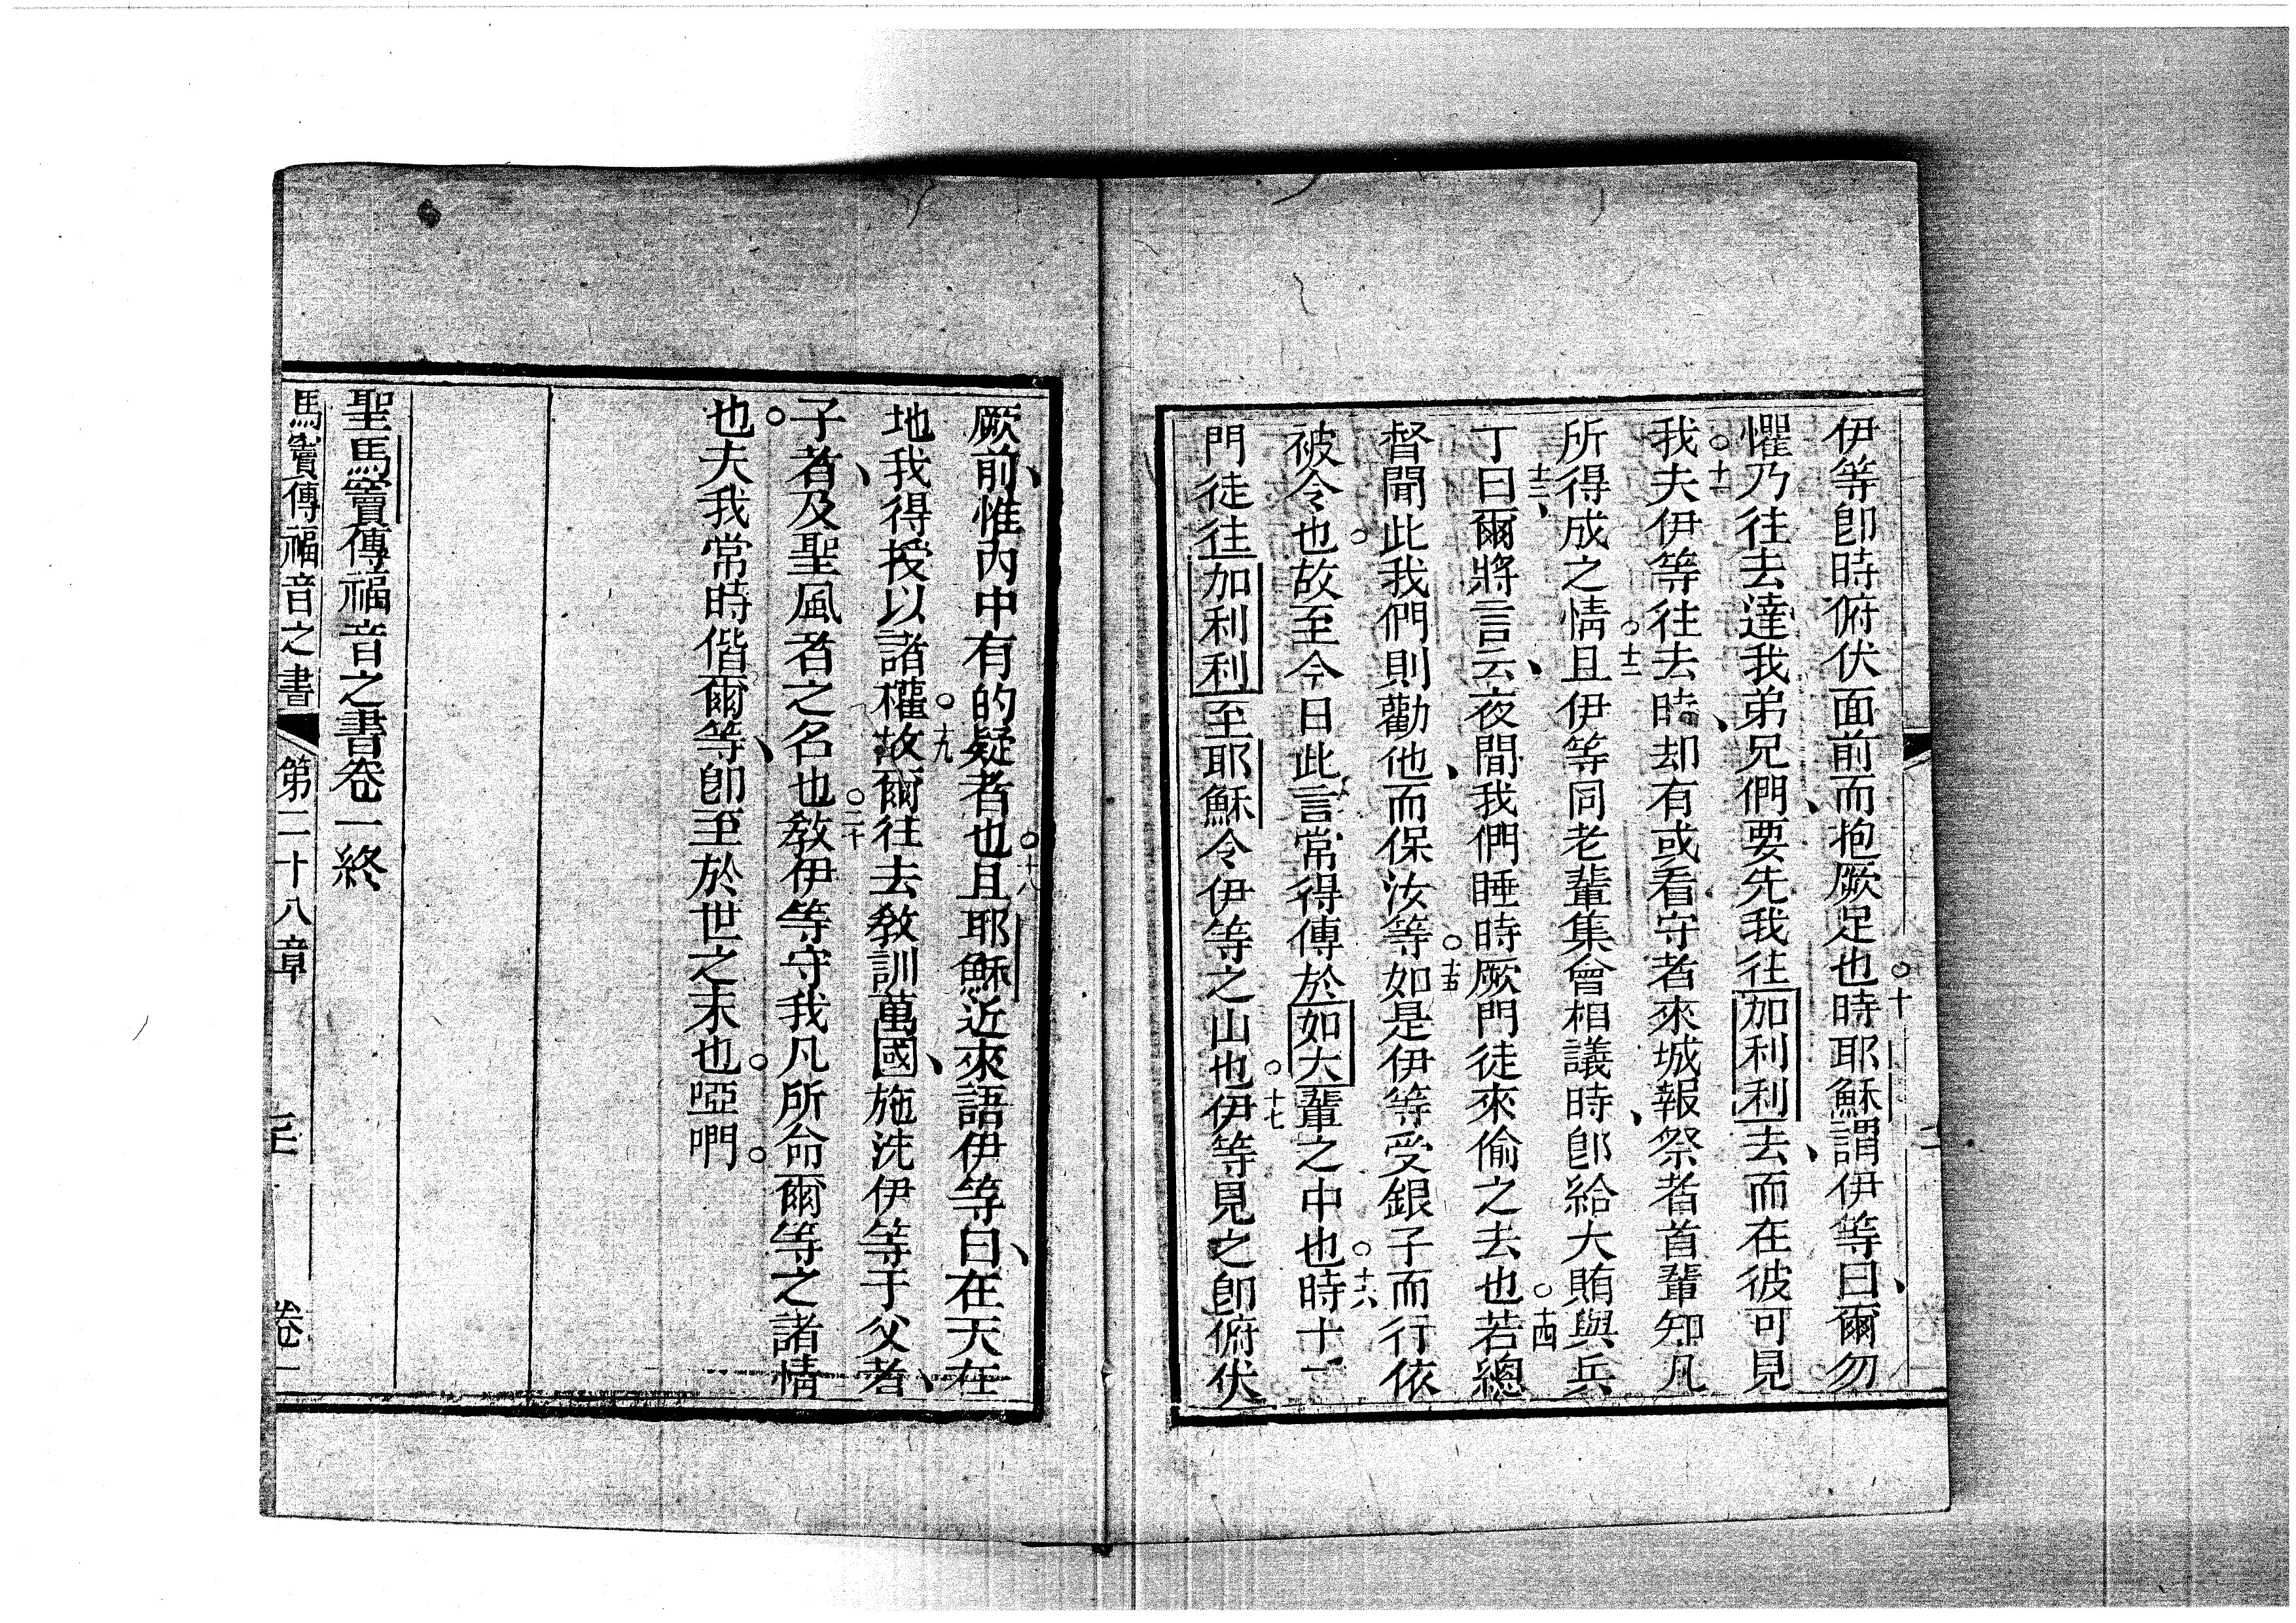 伊等卽時俯伏面前而抱厥足也。十時耶穌謂伊等曰、爾勿
懼乃往去、達我弟兄們、要先我往加利利去、而在彼可見
我。十一夫伊等往去時、却有或看守者來城、報祭者首輩知凡
所得成之情。十二且伊等同老輩集會相議時、卽給大賄與兵
丁十三、曰爾將言云、夜間我們睡時厥門徒來偷之去也。十四若總
督聞此我們則勸他、而保汝等。十五如是伊等受銀子而行依
被令也。故至今日此言常得傳於如大輩之中也。十六時十一
門徒往加利利至耶穌令伊等之山也。十七伊等見之卽俯伏
厥前、惟內中有的疑者也。十八且耶穌近來語伊等曰、在天在
地我得授以諸權。十九故爾往去教訓萬國、施洗伊等于父者、
子者、及聖風者之名也。二十教伊等守我凡所命爾等之諸情
也。夫我常時偕爾等、卽至於世之末也。啞吶。
聖馬竇傳福音之書卷一終
馬竇傳福音之書 第二十八章 卷一